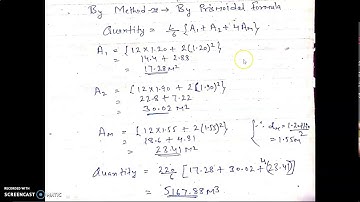 By Method → By Prismoidal Formula
Quantity = L/6 {A1 + A2 + 4Am}
A1 = {12×1.20 + 2(1.20)²}
= 14.4 + 2.88
= 17.28 M²
A2 = {12×1.90 + 2(1.90)²}
= 22.8 + 7.22
= 30.02 M²
Am = {12×1.55 + 2(1.55)²} ∴ dm =
= 18.6 + 4.81 = 1.55M
= 23.41 M²
Quantity = 220/6 [17.28 + 30.02 + 4(23.41)]
= 5167.98 M³
RECORDED WITH
SCREENCAST MATIC